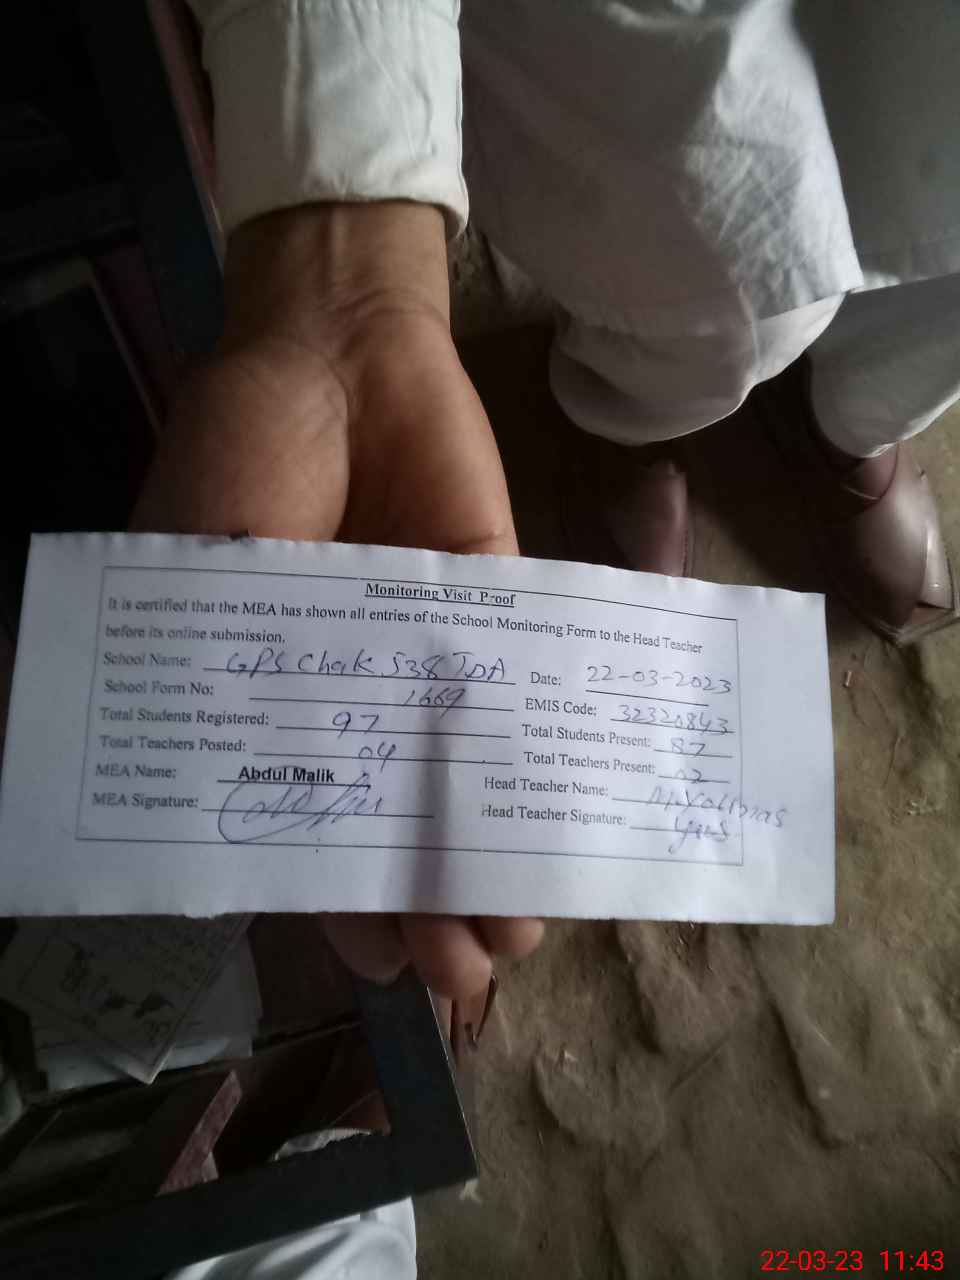 Monitoring Visit Proof
It is certified that the MEA has shown all entries of the School Monitoring Form to the Head Teacher
before its online submission.
School Name: GPS Chak 538 TDA Date: 22-03-2023
School Form No: 1669 EMIS Code: 32320843
Total Students Registered: 97 Total Students Present: 87
Total Teachers Posted: 04 Total Teachers Present: 02
MEA Name: Abdul Malik Head Teacher Name:
MEA Signature: Head Teacher Signature:
22-03-23 11:43